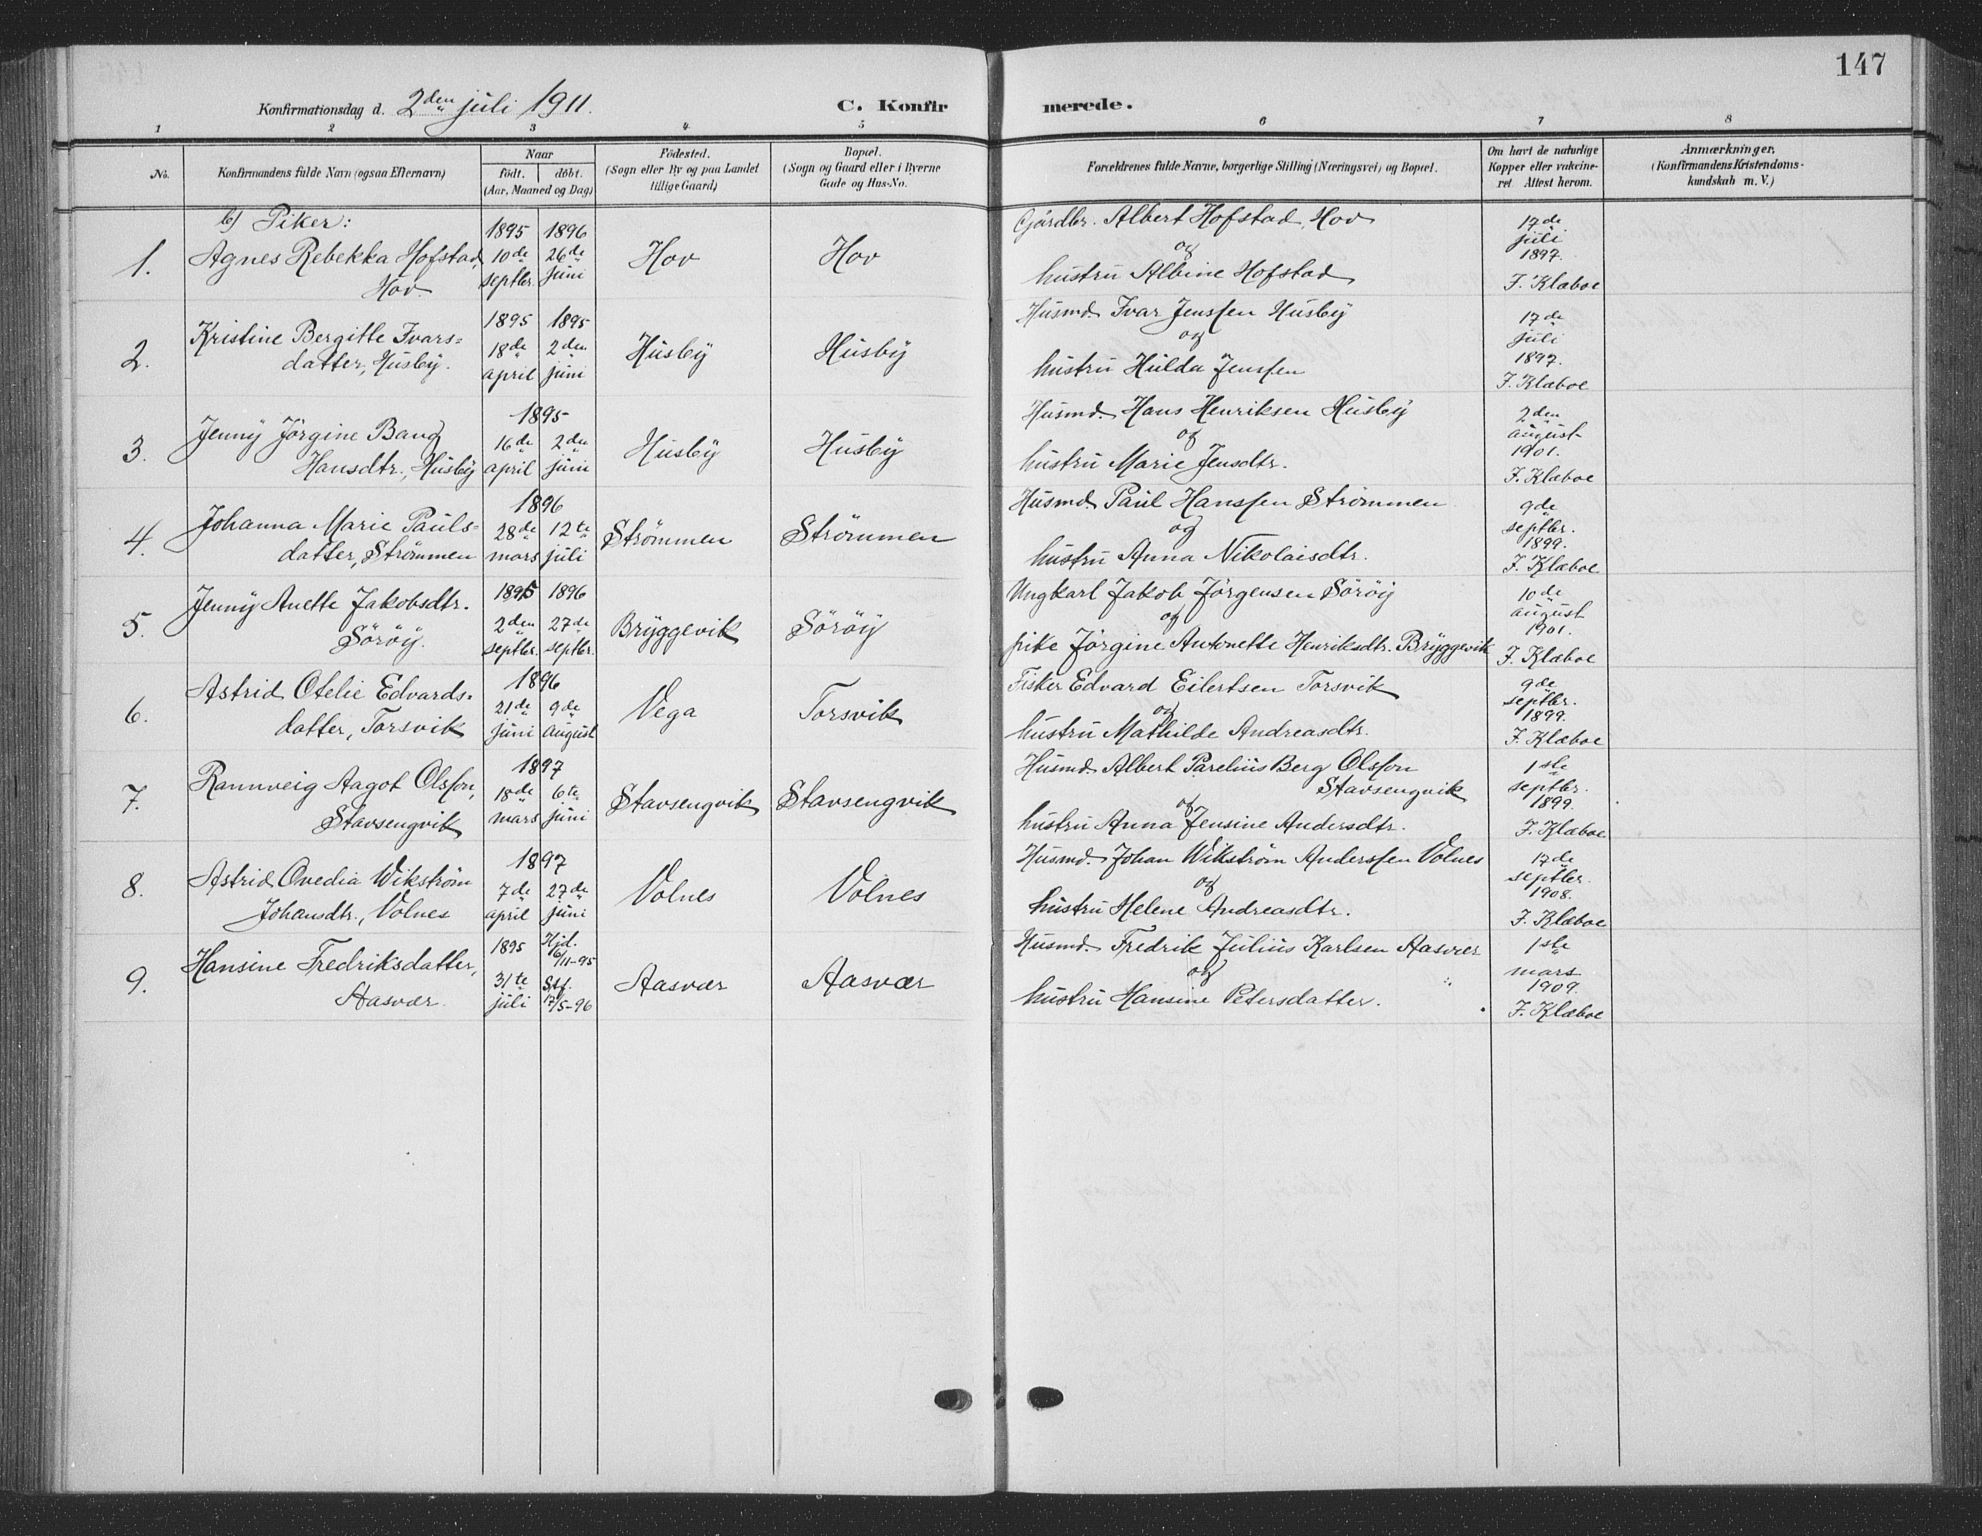 147
Konfirmationsdag d. 2den juli 1911. C. Konfirmerede.
1 2 3 4 5 6 7 8
No.
Konfirmandens fulde Navn (ogsaa Efternavn)
Naar
födt. döbt.
(Aar, Maaned og Dag)
Födested.
(Sogn eller By og paa Landet
tillige Gaard)
Bopæl.
(Sogn og Gaard eller i Byerne
Gade og Hus-No.
Forældrenes fulde Navne, borgerlige Stilling (Næringsvei) og Bopæl.
Om havt de naturlige
Kopper eller vakcine-
ret. Attest herom.
Anmærkninger.
(Konfirmandens Kristendoms-
kundskab m. V.)
b) Piker:
1.
Agnes Rebekka Hofstad,
Hov.
1895 1896
10de 26de
septbr. juni
Hov
Hov
Gjårdbr. Albert Hofstad, Hov
og
hustru Albine Hofstad
17de
juli
1897.
F. Klæboe
2.
Kristine Bergitte Ivars=
datter, Husby.
1895 1895
18de 2den
april juni
Husby
Husby
Husmd. Ivar Jenssen Husby
og
hustru Hulda Jenssen
17de
juli
1897.
F. Klæboe
3.
Jenny Jörgine Bang
Hansdtr., Husby
1895
16de 2den
april juni
Husby
Husby
Husmd. Hans Henriksen Husby
og
hustru Marie Jensdtr.
2den
august
1901.
F. Klæboe
4.
Johanna Marie Pauls=
datter, Strømmen
1896
28de 12te
mars juli
Strømmen
Strömmen
Husmd. Paul Hanssen Strømmen
og
hustru Anna Nikolaisdtr.
9de
septbr.
1899.
F. Klæboe
5.
Jenny Anette Jakobsdtr.
Söröy.
1895 1896
2den 27de
septbr. septbr.
Bryggevik
Söröy
Ungkarl Jakob Jörgensen Söröy
og
pike Jörgine Antonette Henriksdtr. Bryggevik
10de
august
1901.
F. Klæboe
6.
Astrid Otelie Edvards=
datter, Torsvik
1896
21de 9de
juni august
Vega
Torsvik
Fisker Edvard Eilertsen Torsvik
og
hustru Mathilde Andreasdtr.
9de
septbr.
1899.
F. Klæboe
7.
Rannveig Aagot Olsson,
Stavsengvik
1897
18de 6te
mars juni
Stavsengvik
Stavsengvik
Husmd. Albert Parelius Berg Olsson
Stavsengvik
og
hustru Anna Jensine Andersdtr.
1ste
septbr.
1899.
F. Klæboe
8.
Astrid Ovedia Wikström
Johansdtr., Volnes
1897
7de 27de
april juni
Volnes
Volnes
Husmd. Johan Wikström Anderssen Volnes
og
hustru Helene Andreasdtr.
17de
septbr.
1908.
F. Klæboe
9.
Hansine Fredriksdatter,
Aasvær.
1895 Hjd.
6/11-95
31te Stf.
juli 17/5-96
Aasvær
Aasvær
Husmd. Fredrik Julius Karlsen Aasvær
og
hustru Hansine Petersdatter.
1ste
mars
1909.
F. Klæboe